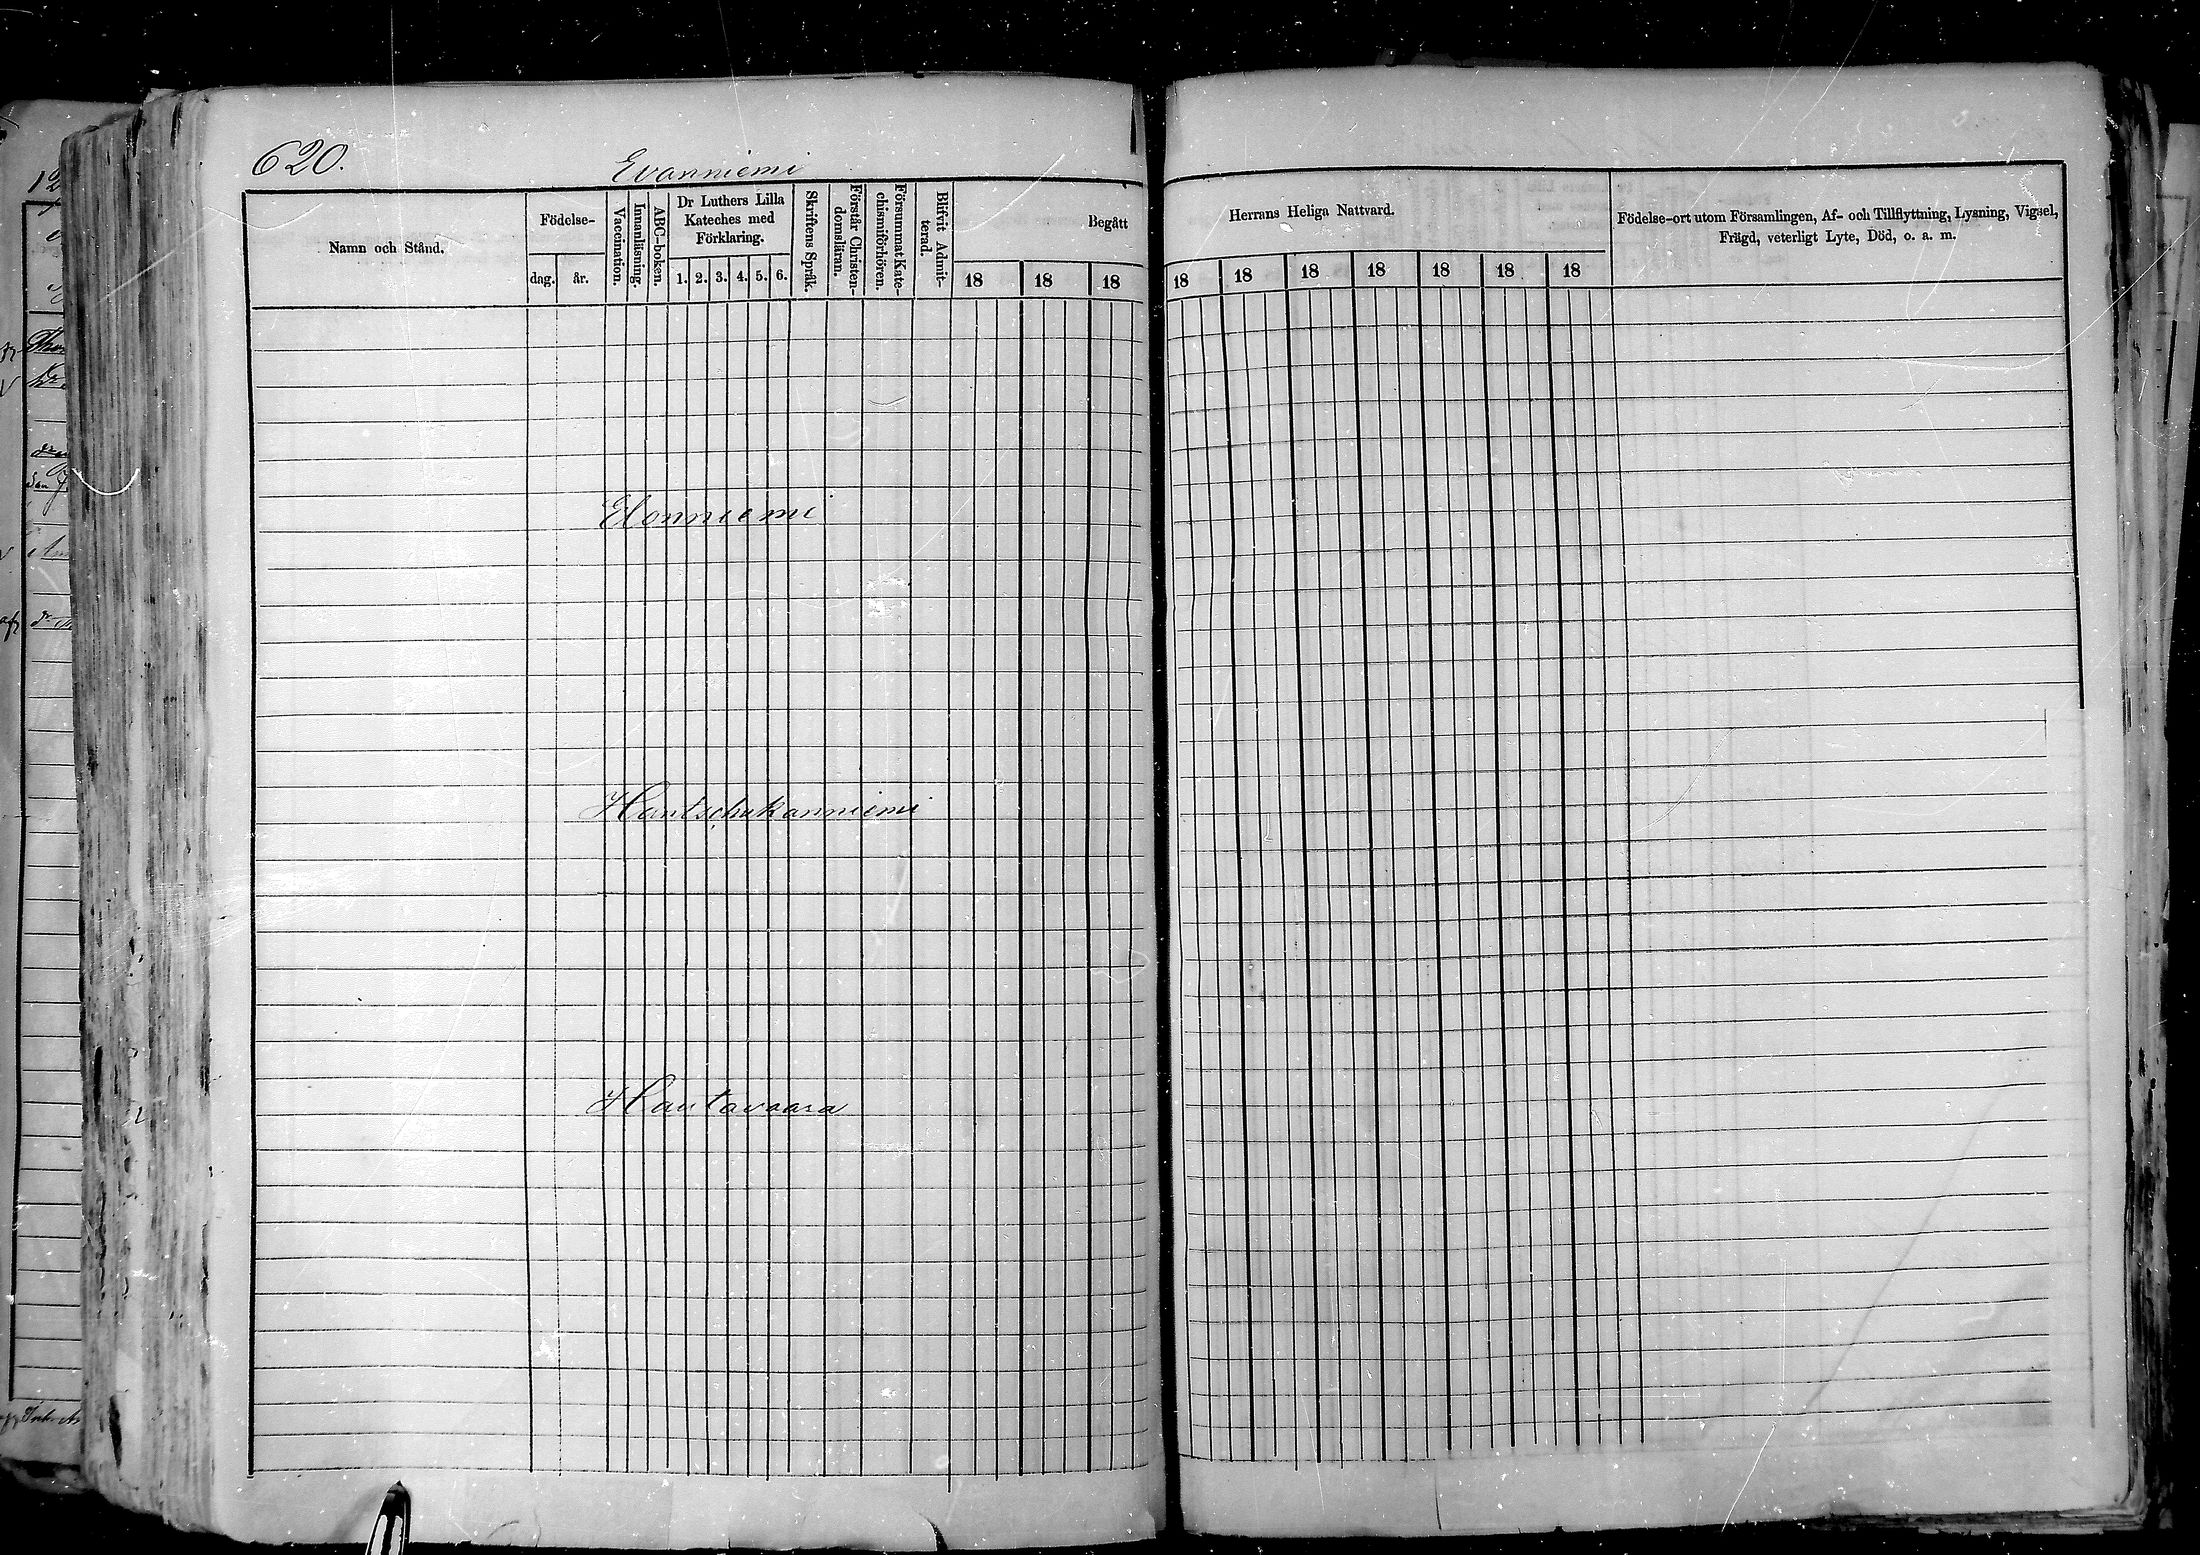 620.
Evanniemi
Namn och Stånd.
Födelse-
dag.
år.
Vaccination.
Innanläsning.
ABC-boken.
Dr Luthers Lilla
Kateches med
Förklaring.
1. 2. 3. 4. 5. 6.
Skriftens Språk.
Förstår Christen-
domsläran.
Försummat Kate-
chismiförhören.
Blifvit Admit-
terad.
Begått
18 18 18
Herrans Heliga Nattvard.
18 18 18 18 18 18 18
Födelse-ort utom Församlingen, Af- och Tillflyttning, Lysning, Vigsel,
Frägd, veterligt Lyte, Död, o. a. m.
Elonniemi
Hantschukanniemi
Hautavaara